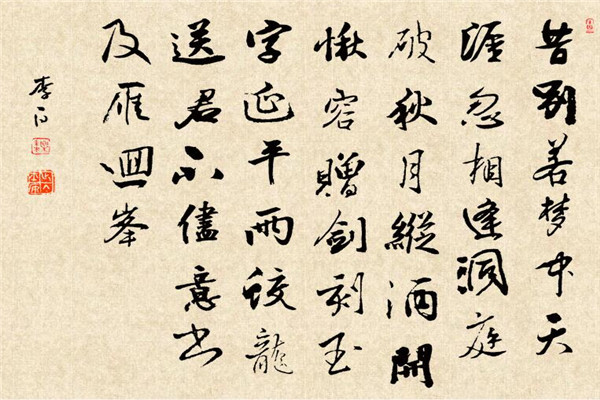 昔別若梦中天
涯忽相逢洞庭
破秋月縱酒開
愀容贈劍刻玉
字延平兩蛟龍
送君不儘意书
及雁迴峯
李白